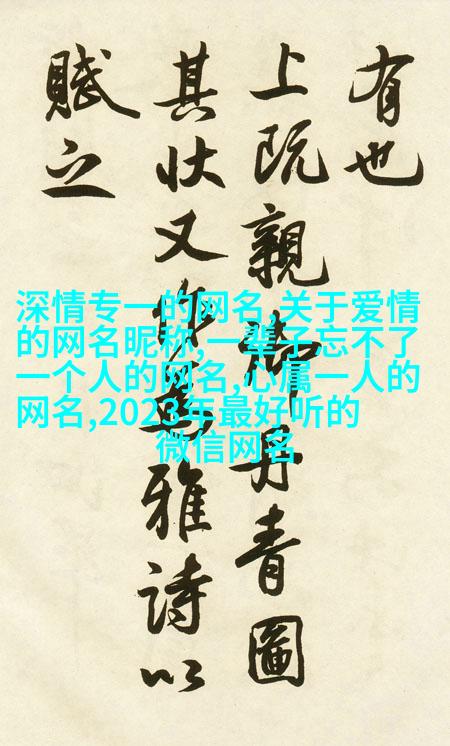 有也
上既親御丹青圖
其状又作為雅詩以
賦之
深情专一的网名,关于爱情
的网名昵称,一辈子忘不了
一个人的网名,心属一人的
网名,2023年最好听的
微信网名